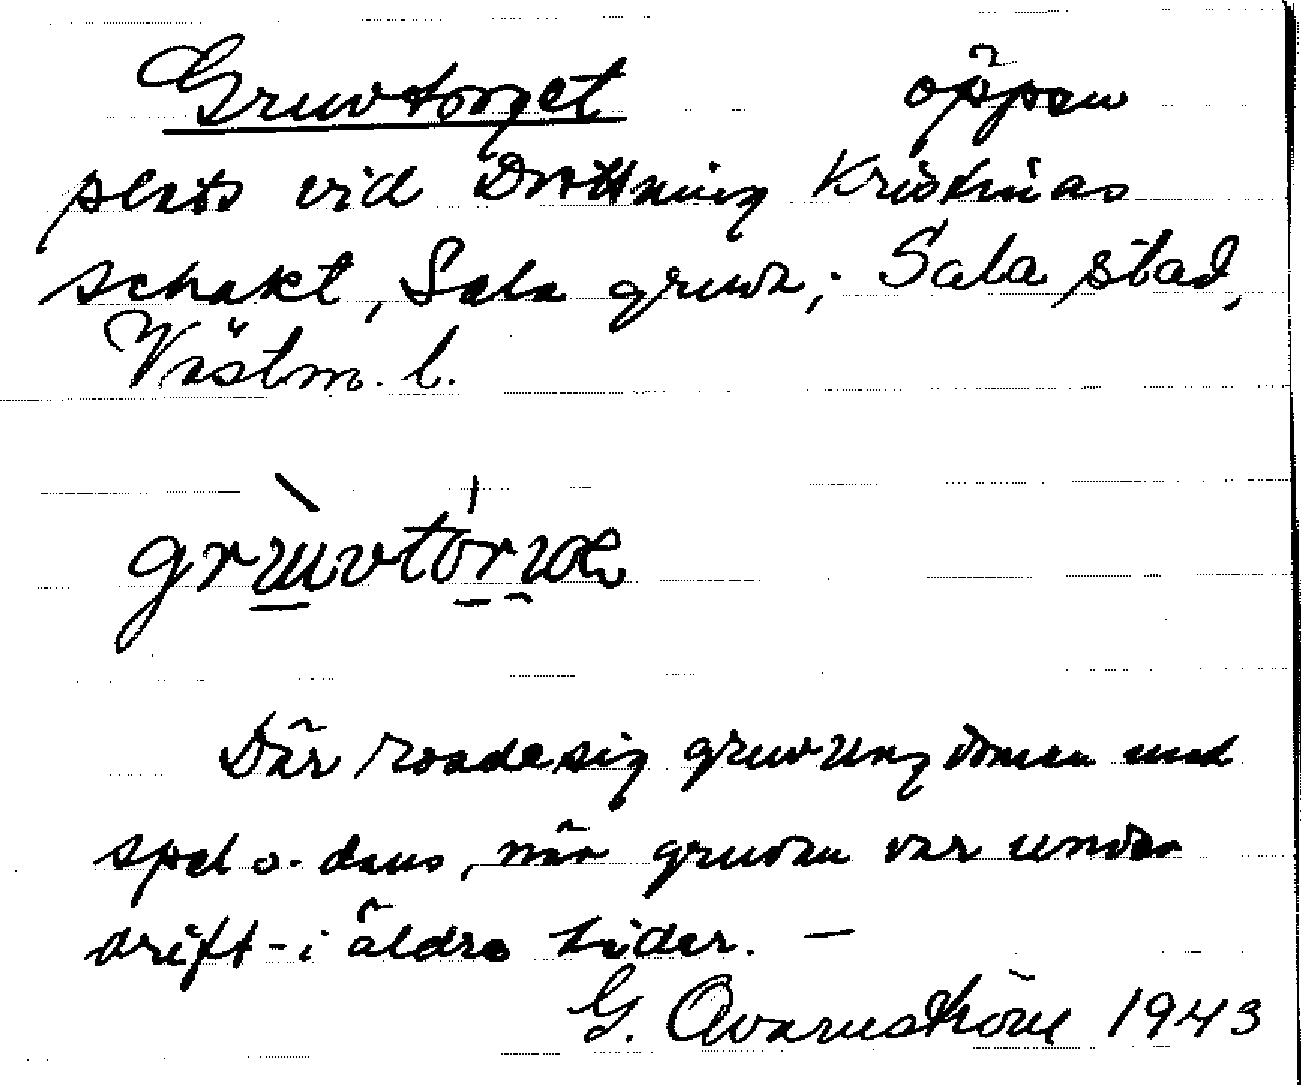 Gruvtorget öppen
plats vid Drottning Kristinas
schakt, Sala gruva; Sala stad,
Västm. l.
Där roade sig gruvungdomen med
spel o. dans, när gruvan var under
drift - i äldre tider. —
G. Qvarnström 1943